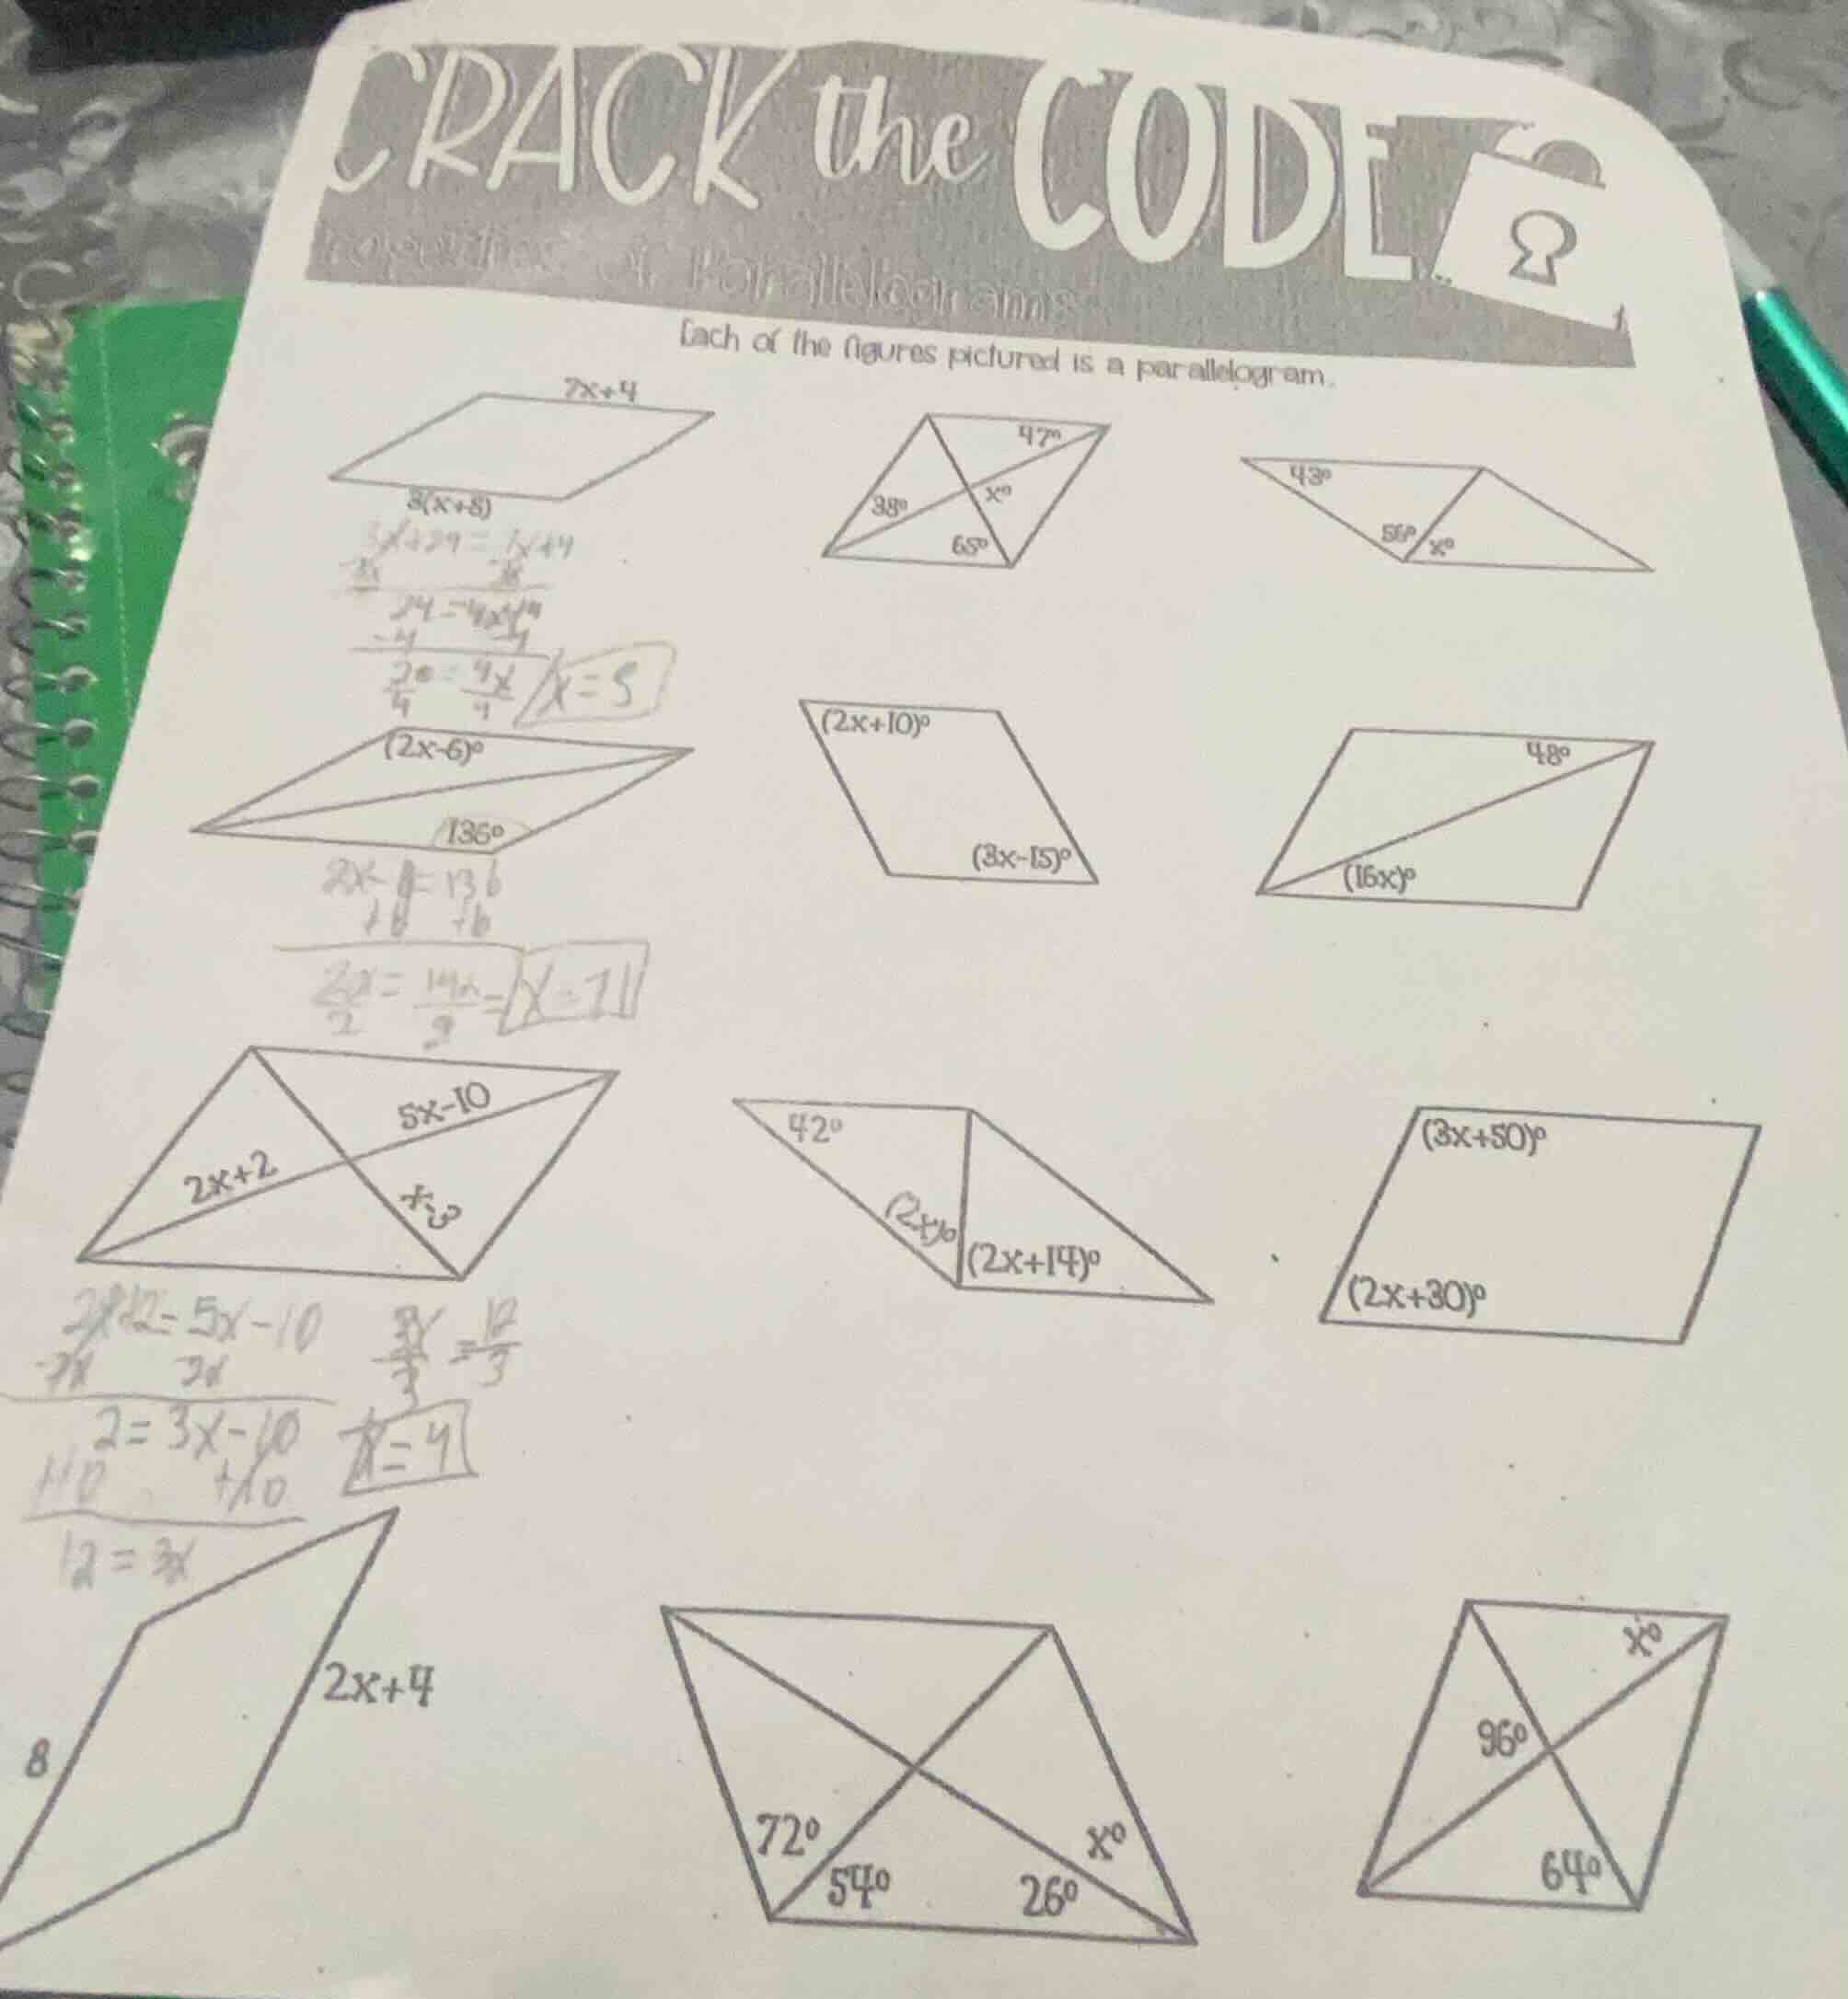 CRACK the CODE
Properties of Parallelograms
Each of the figures pictured is a parallelogram.
7x+4
3(x+8)
3x+24=7x+4
-3x -3x
24=4x+4
-4 -4
20 = 4x
4 4
x=5
47°
38°
x°
65°
43°
56°
x°
(2x-6)°
136°
2x-6=136
+6 +6
2x = 142 =
2 2
x=71
(2x+10)°
(3x-15)°
48°
(16x)°
5x-10
2x+2
x-3
2x+2=5x-10
-2x 2x
2=3x-10
+10 +10
12=3x
3x = 12
3 3
x=4
42°
(2x)°
(2x+14)°
(3x+50)°
(2x+30)°
8
2x+4
72°
54°
26°
x°
x°
96°
64°